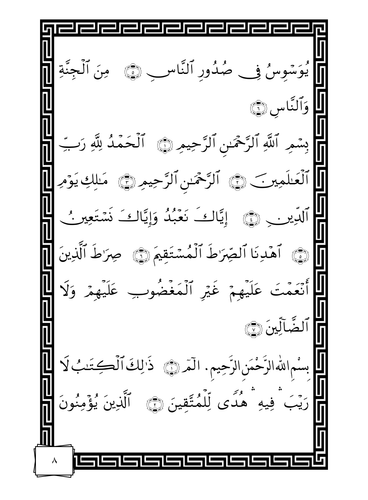 يُوَسْوِسُ فِى صُدُورِ ٱلنَّاسِ ۝٥ مِنَ ٱلْجِنَّةِ
وَٱلنَّاسِ ۝٦
بِسْمِ ٱللَّهِ ٱلرَّحْمَٰنِ ٱلرَّحِيمِ ۝١ ٱلْحَمْدُ لِلَّهِ رَبِّ
ٱلْعَٰلَمِينَ ۝٢ ٱلرَّحْمَٰنِ ٱلرَّحِيمِ ۝٣ مَٰلِكِ يَوْمِ
ٱلدِّينِ ۝٤ إِيَّاكَ نَعْبُدُ وَإِيَّاكَ نَسْتَعِينُ
۝٥ ٱهْدِنَا ٱلصِّرَٰطَ ٱلْمُسْتَقِيمَ ۝٦ صِرَٰطَ ٱلَّذِينَ
أَنْعَمْتَ عَلَيْهِمْ غَيْرِ ٱلْمَغْضُوبِ عَلَيْهِمْ وَلَا
ٱلضَّآلِّينَ ۝٧
بِسْمِ اللهِ الرَّحْمٰنِ الرَّحِيمِ. الٓمٓ ۝١ ذَٰلِكَ ٱلْكِتَٰبُ لَا
رَيْبَ ۛ فِيهِ ۛ هُدًى لِّلْمُتَّقِينَ ۝٢ ٱلَّذِينَ يُؤْمِنُونَ
٨